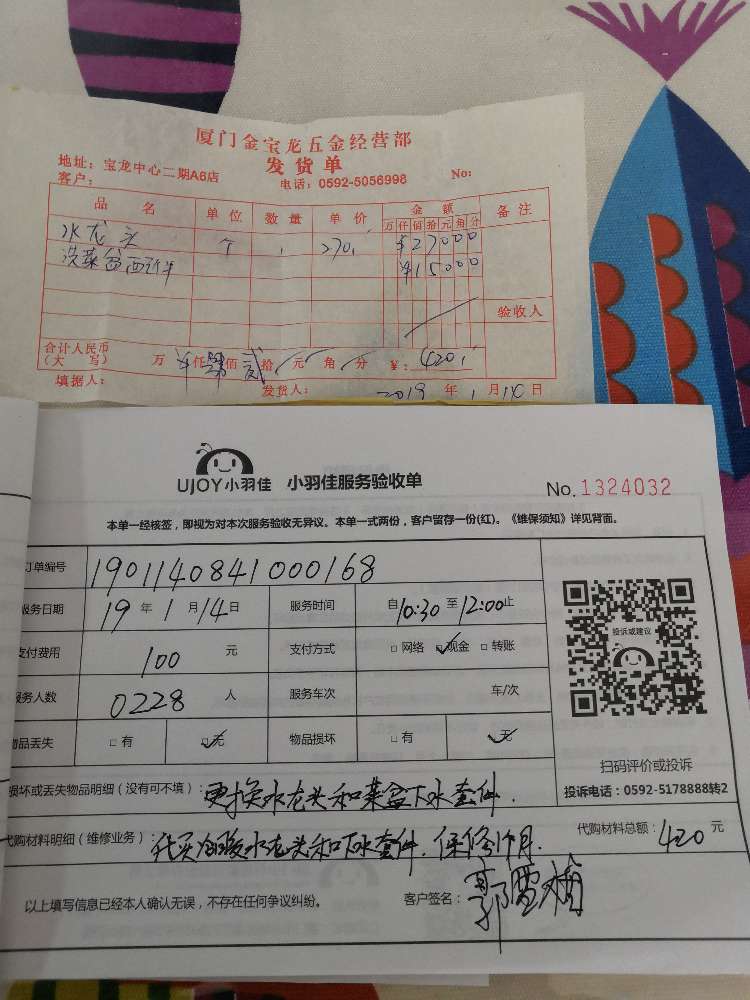 厦门金宝龙五金经营部
发货单
地址：宝龙中心二期A6店 电话：0592-5056998 No:
客户：
品名 单位 数量 单价 金额 备注
万仟佰拾元角分
水龙头 个 1 270. ¥27000
洗菜盆 ¥15000
验收人
合计人民币
（大写） 万 仟 肆佰 贰拾 元 角 分 ¥: 420.
填据人： 发货人： 2019年1月14日
UJOY小羽佳 小羽佳服务验收单 No. 1324032
本单一经核签，即视为对本次服务验收无异议。本单一式两份，客户留存一份(红)。《维保须知》详见背面。
订单编号 1901140841000168
服务日期 19年1月14日 服务时间 自10:30至12:00止
支付费用 100元 支付方式 □网络 ☑现金 □转账
服务人数 0228人 服务车次 车/次
物品丢失 □有 ☑无 物品损坏 □有 ☑无
投诉或建议
扫码评价或投诉
投诉电话：0592-5178888转2
损坏或丢失物品明细（没有可不填）：更换水龙头和菜盆下水套件.
代购材料明细（维修业务）：代买冷暖水龙头和下水套件.保修1个月. 代购材料总额：420元
以上填写信息已经本人确认无误，不存在任何争议纠纷。 客户签名：郭雪梅